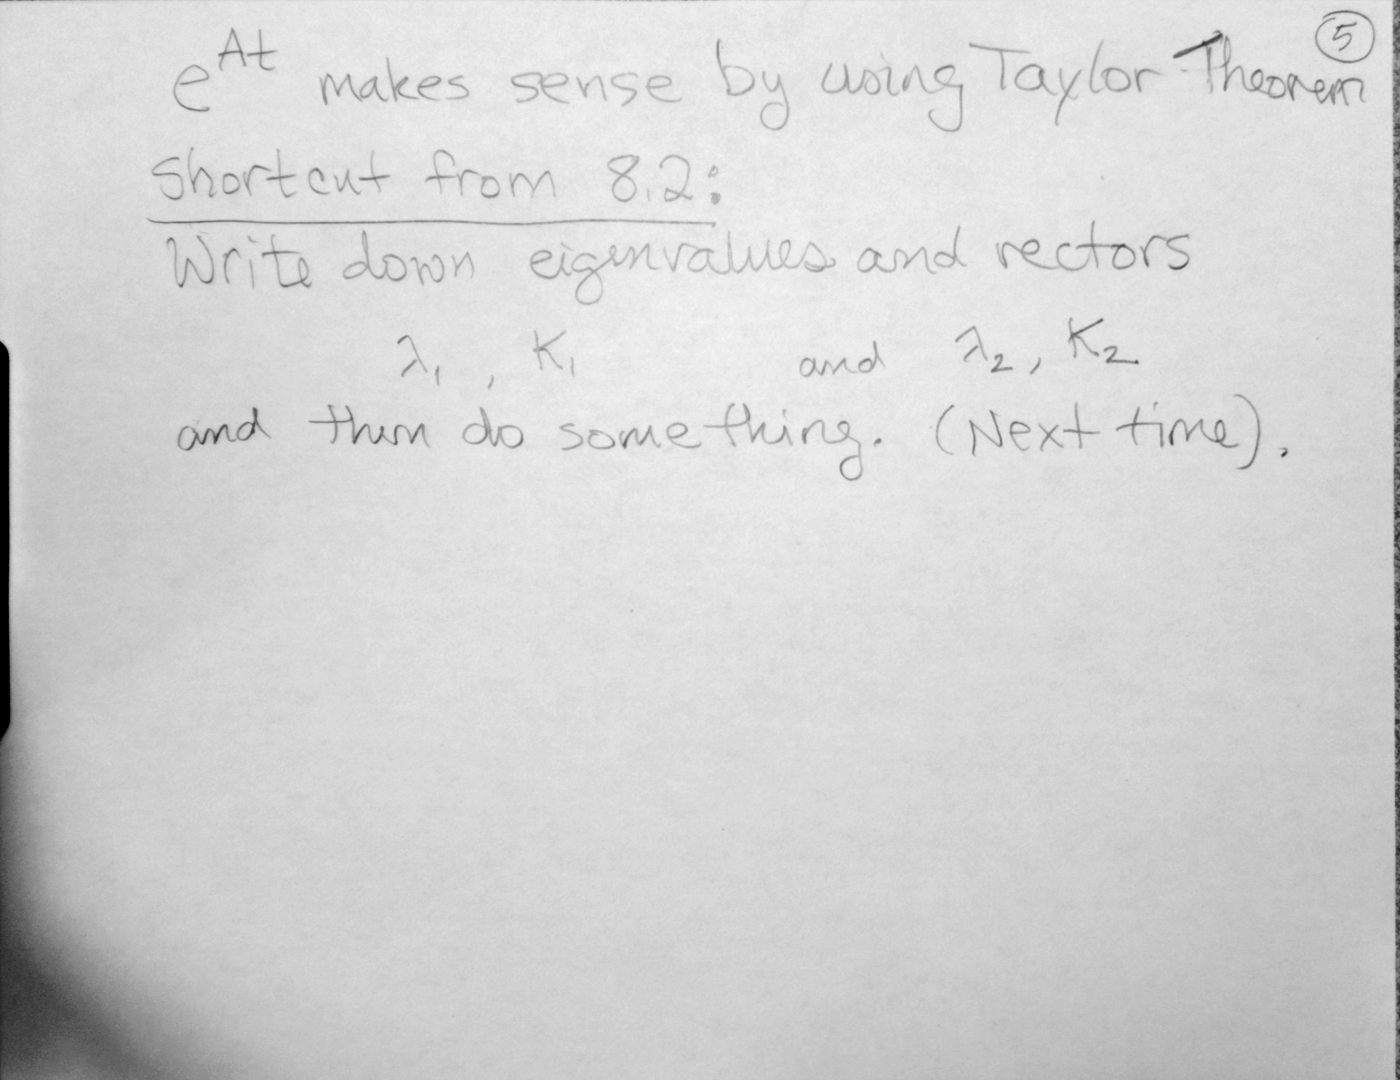 ⑤
e^{At} makes sense by using Taylor Theorem
Shortcut from 8.2:
Write down eigenvalues and vectors
λ₁, K₁ and λ₂, K₂
and then do something. (Next time).